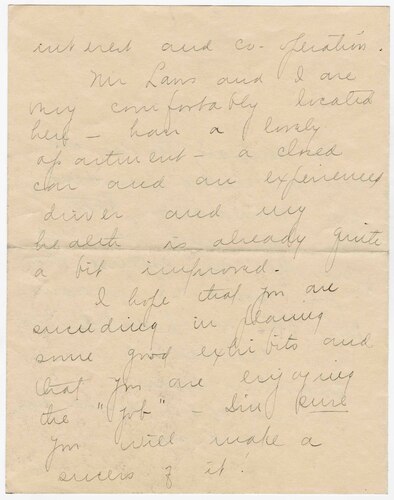 interest and co-operation.
Mr Laws and I are
very comfortably located
here - have a lovely
apartment - a closed
car and an experienced
driver and my
health is already quite
a bit improved.
I hope that you are
succeeding in planing
some good exhibits and
that you are enjoying
the "job" - I'm sure
you will make a
success of it!